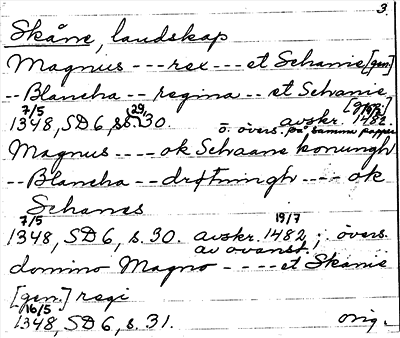 3.
Skåne, landskap
Magnus --- rex --- et Schanie [gen.]
-- Blancha -- regina -- et Schanie [gen.]
7/5 29, 19/7
1348, SD 6, s. 30. avskr. 1482
o. övers. på samma papper
Magnus ---- ok Schaane konungh
-- Blancha -- drottningh ---- ok
Schanes
7/5 19/7
1348, SD 6, s. 30. avskr. 1482; övers.
av ovanst.
domino Magno ---- et Skanie
[gen.] regi
16/5
1348, SD 6, s. 31. orig.